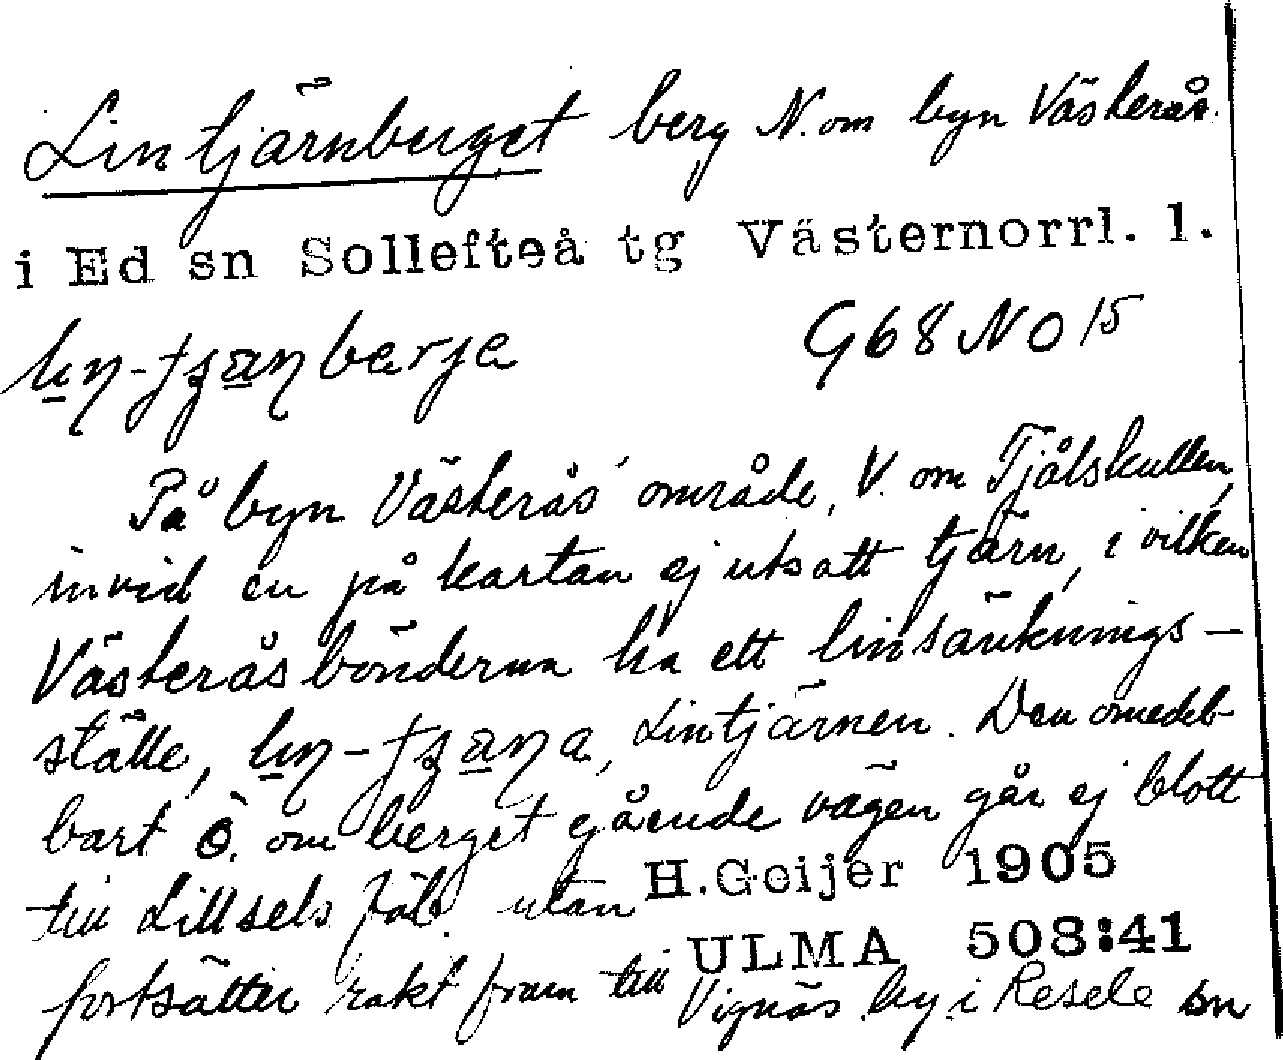 Lintjärnberget berg N. om byn Västerås.
i Ed sn Sollefteå tg Västernorrl. l.
G68 NO 15
På byn Västerås' område, V. om Tjålskullen,
invid en på kartan ej utsatt tjärn, i vilken
Västeråsbönderna ha ett linsänknings-
ställe, Lintjärnen. Den omedel-
bart Ö. om berget gående vägen går ej blott
till Lillsels fäb. utan H.Geijer 1905
ULMA 508:41
fortsätter rakt fram till Vignäs by i Resele sn